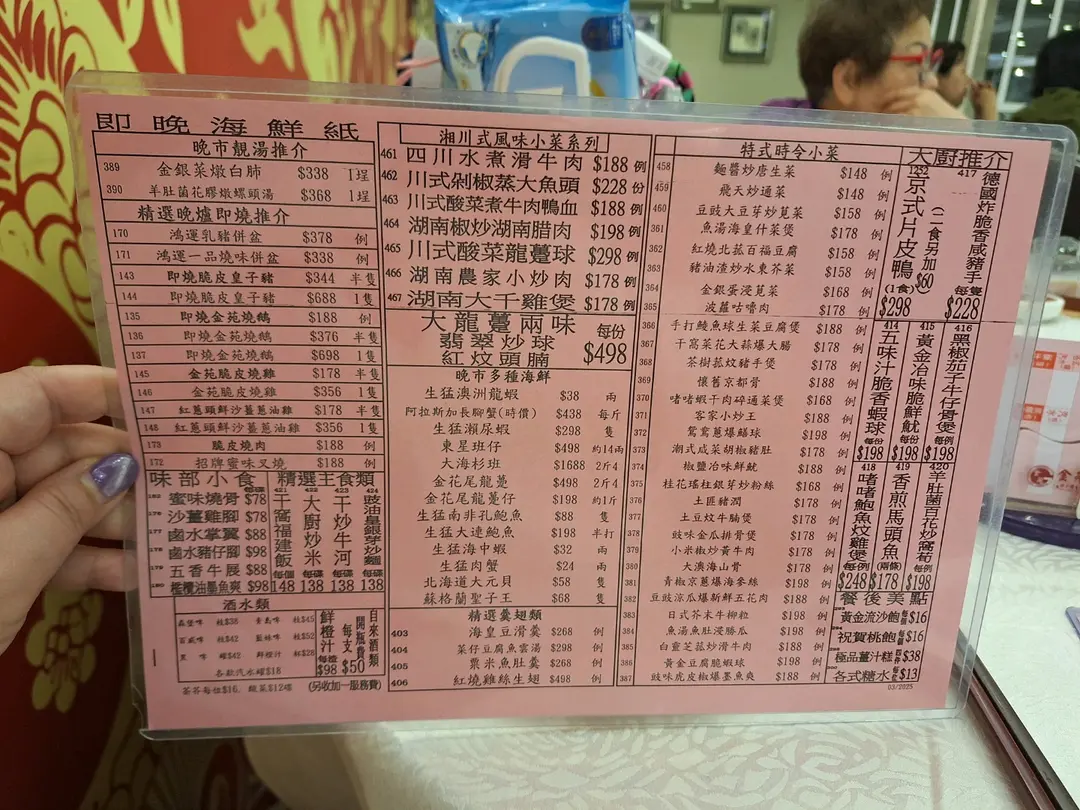 即晚海鮮紙
晚市靚湯推介
389 金銀菜燉白肺 $338 1埕
390 羊肚菌花膠燉螺頭湯 $368 1埕
精選晚爐即燒推介
170 鴻運乳豬併盆 $378 例
171 鴻運一品燒味併盆 $338 例
143 即燒脆皮皇子豬 $344 半隻
144 即燒脆皮皇子豬 $688 1隻
135 即燒金苑燒鵝 $188 例
136 即燒金苑燒鵝 $376 半隻
137 即燒金苑燒鵝 $698 1隻
145 金苑脆皮燒雞 $178 半隻
146 金苑脆皮燒雞 $356 1隻
147 紅蔥頭鮮沙薑蔥油雞 $178 半隻
148 紅蔥頭鮮沙薑蔥油雞 $356 1隻
173 脆皮燒肉 $188 例
172 招牌蜜味叉燒 $188 例
味部小食
蜜味燒骨 $78
沙薑雞腳 $78
177 鹵水掌翼 $88
178 鹵水豬仔腳 $98
179 五香牛展 $88
180 欖欖油墨魚爽 $98
精選主食類
421 干窩福建飯 每個 148
422 大廚炒米 每碟 138
423 干炒牛河 每碟 138
424 豉油皇銀芽炒麵 每碟 138
酒水類
森堡啤 枝$38 青島啤 枝$45
百威啤 $42 藍妹啤 枝$52
黑啤 罐$42 鮮橙汁 杯$28
各款汽水罐$18
鮮橙汁 每渣 $98
自來酒類 開瓶費 每支 $50
茶芥每位$16. 鹹菜$12碟 (另收加一服務費)
湘川式風味小菜系列
461 四川水煮滑牛肉 $188 例
462 川式剁椒蒸大魚頭 $228 份
463 川式酸菜煮牛肉鴨血 $188 例
464 湖南椒炒湖南腊肉 $198 例
465 川式酸菜龍躉球 $298 例
466 湖南農家小炒肉 $178 例
467 湖南大千雞煲 $178 例
大龍躉兩味
翡翠炒球
紅炆頭腩
每份 $498
晚市多種海鮮
生猛澳洲龍蝦 $38 兩
阿拉斯加長腳蟹(時價) $438 每斤
生猛瀨尿蝦 $298 隻
東星班仔 $498 約14兩
大海杉班 $1688 2斤4
金花尾龍躉 $498 2斤4
金花尾龍躉仔 $198 約1斤
生猛南非孔鮑魚 $88 隻
生猛大連鮑魚 $198 半打
生猛海中蝦 $32 兩
生猛肉蟹 $24 兩
北海道大元貝 $58 隻
蘇格蘭聖子王 $68 隻
精選羹翅類
403 海皇豆滑羹 $268 例
404 菜仔豆腐魚雲湯 $298 例
405 粟米魚肚羹 $268 例
406 紅燒雞絲生翅 $498 例
特式時令小菜
458 麵醬炒唐生菜 $148 例
459 飛天炒通菜 $148 例
460 豆豉大豆芽炒莧菜 $158 例
361 魚湯海皇什菜煲 $178 例
362 紅燒北菇百福豆腐 $158 例
363 豬油渣炒水東芥菜 $158 例
364 金銀蛋浸莧菜 $168 例
365 菠蘿咕嚕肉 $178 例
366 手打鯪魚球生菜豆腐煲 $188 例
367 干窩菜花大蒜爆大腸 $178 例
368 茶樹菰炆豬手煲 $178 例
369 懷舊京都骨 $188 例
370 啫啫蝦干肉碎通菜煲 $168 例
371 客家小炒王 $188 例
372 鴛鴦蔥爆鱔球 $198 例
373 潮式咸菜胡椒豬肚 $178 例
374 椒鹽冶味鮮魷 $188 例
375 桂花瑤柱銀芽炒粉絲 $168 例
376 土匪豬潤 $178 例
377 土豆炆牛腩煲 $178 例
378 豉味金瓜排骨煲 $178 例
379 小米椒炒黃牛肉 $178 例
380 大澳海山骨 $178 例
381 青椒京蔥爆海參絲 $198 例
382 豆豉涼瓜爆新鮮五花肉 $188 例
383 日式芥末牛柳粒 $198 例
384 魚湯魚肚浸勝瓜 $198 例
385 白靈芝菰炒滑牛肉 $188 例
386 黃金豆腐脆蝦球 $198 例
387 豉味虎皮椒爆墨魚爽 $188 例
大廚推介
1252 京式片皮鴨 (1食) $298 (二食另加$60)
417 德國炸脆香咸豬手 每隻 $228
414 五味汁脆香蝦球 每份 $198
415 黃金冶味脆鮮魷 每份 $198
416 黑椒茄子牛仔骨煲 每例 $198
418 啫啫鮑魚炆雞煲 每例 $248
419 香煎馬頭魚 (兩條) $178
420 羊肚菌百花炒窩筍 每例 $198
餐後美點
黃金流沙飽 $16
祝賀桃飽 $16
極品薑汁糕 $38
各式糖水 $13
03/2025